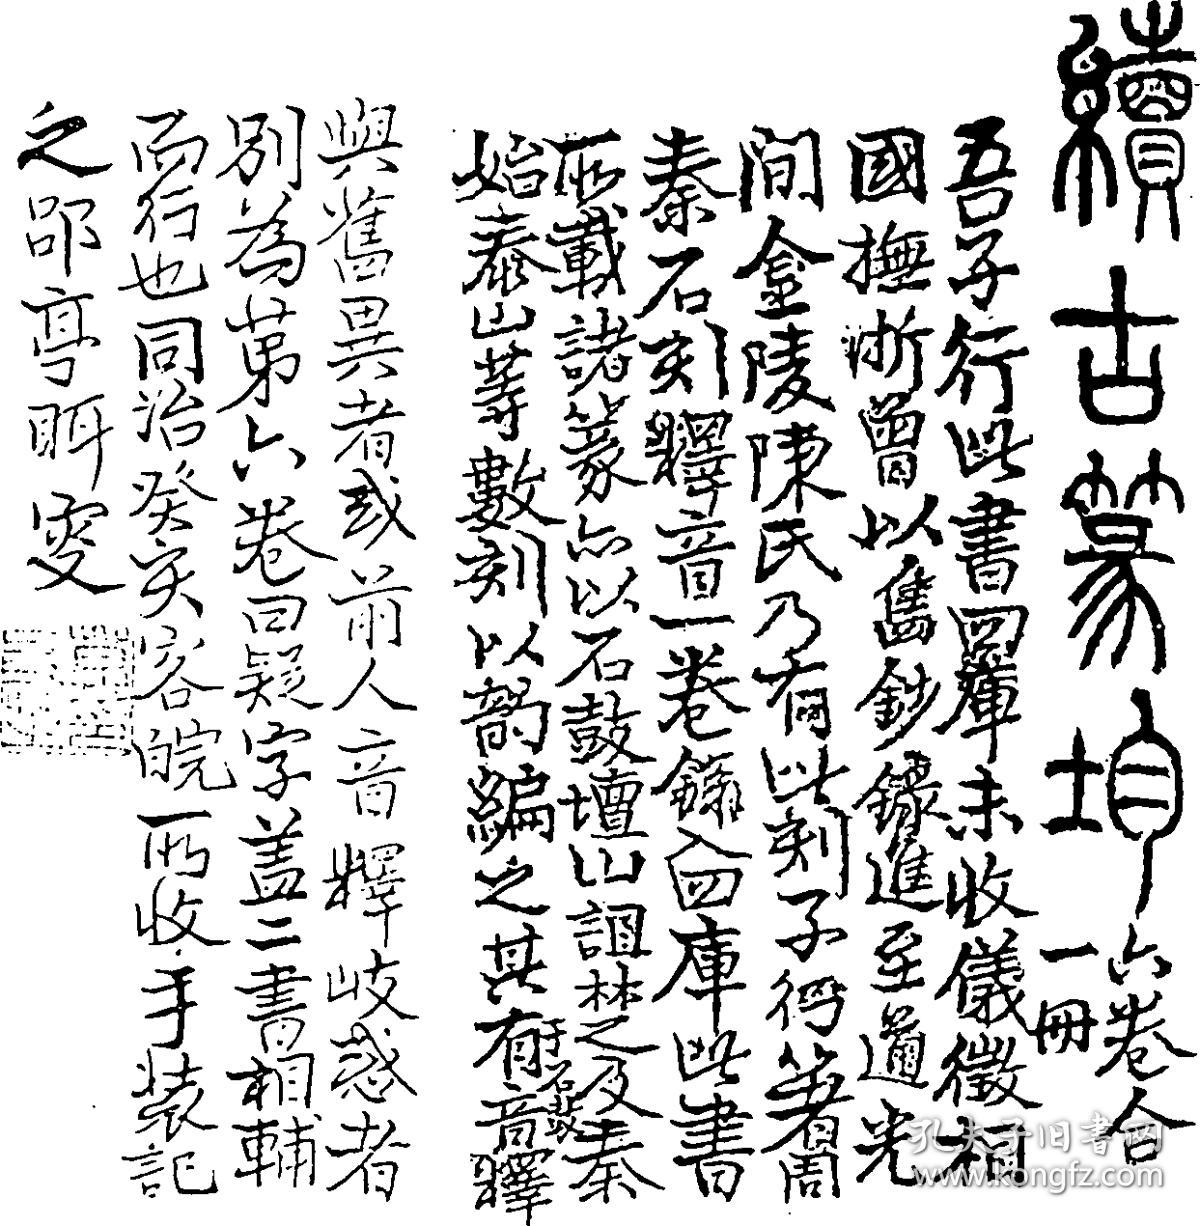 續古篆均
六卷合
一冊
吾子行此書四庫未收儀徵相
國撫浙曾以舊鈔錄進至道光
間金陵陳氏乃有此刻子行著周
秦石刻釋音一卷錄入四庫此書
所載諸篆亦以石鼓壇山詛楚文及秦
始泰山等數刻以韵編之其有音釋
于石鼓
與舊異者或前人音釋岐惑者
別為第六卷曰疑字盖二書相輔
而行也同治癸亥客皖所收手裝記
之郘亭眲叟
孔夫子旧书网
www.kongfz.com